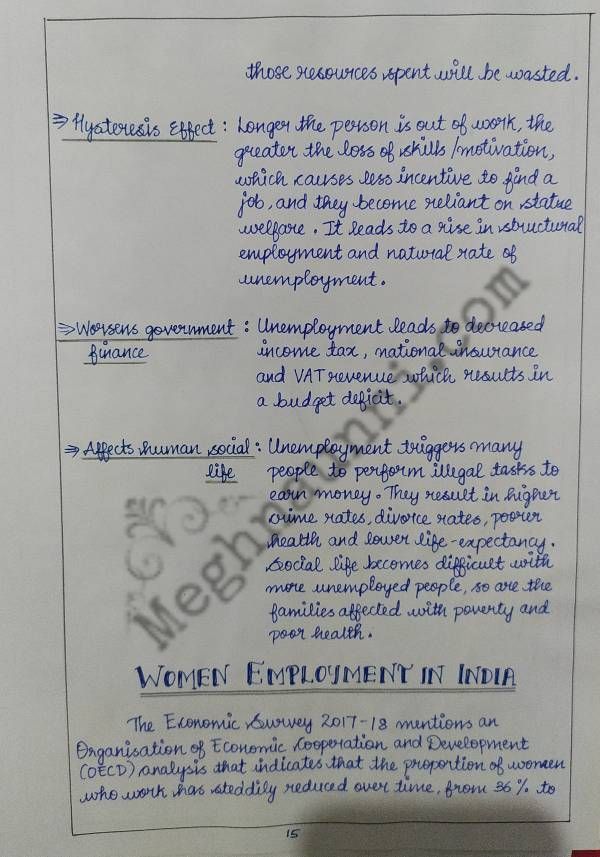 those resources spent will be wasted.
⇒ Hysteresis Effect : Longer the person is out of work, the
greater the loss of skills/motivation,
which causes less incentive to find a
job, and they become reliant on statue
welfare. It leads to a rise in structural
employment and natural rate of
unemployment.
⇒ Worsens government : Unemployment leads to decreased
finance income tax, national insurance
and VAT revenue which results in
a budget deficit.
⇒ Affects human social : Unemployment triggers many
life people to perform illegal tasks to
earn money. They result in higher
crime rates, divorce rates, poorer
health and lower life-expectancy.
Social life becomes difficult with
more unemployed people, so are the
families affected with poverty and
poor health.
WOMEN EMPLOYMENT IN INDIA
The Economic Survey 2017-18 mentions an
Organisation of Economic Cooperation and Development
(OECD) analysis that indicates that the proportion of women
who work has steddily reduced over time, from 36% to
15
Meghnaunni.com